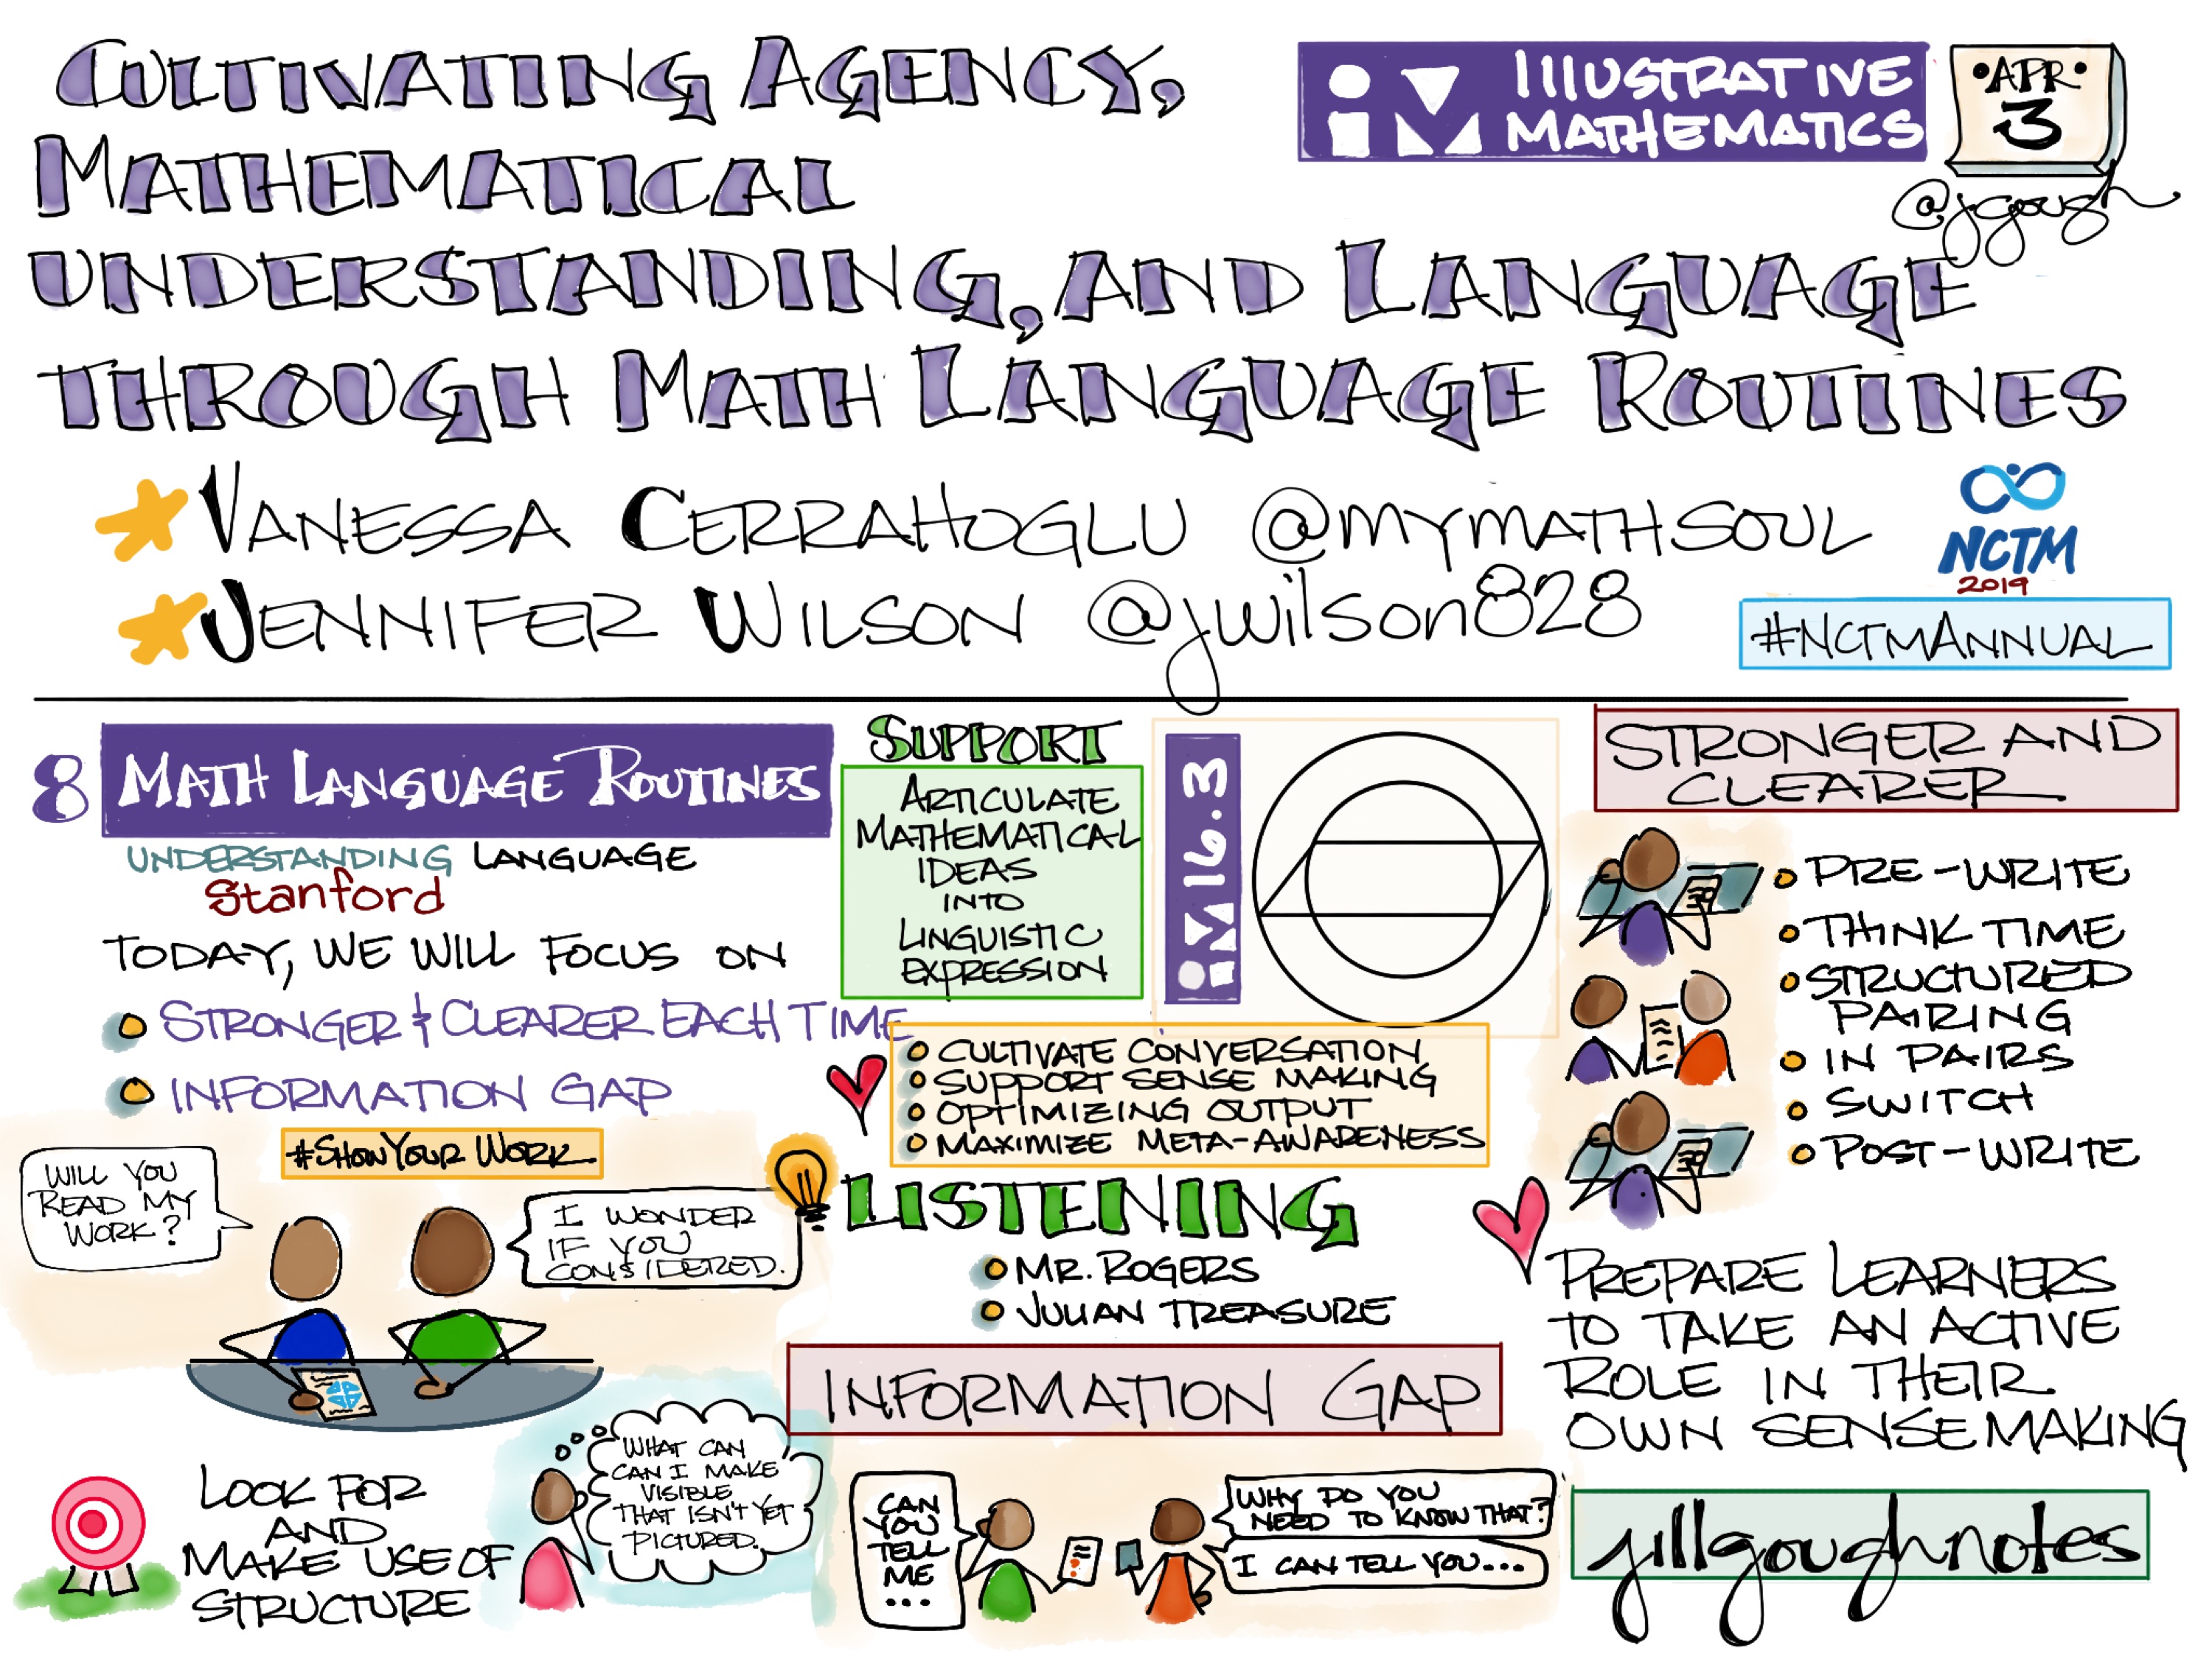 CULTIVATING AGENCY,
MATHEMATICAL
UNDERSTANDING, AND LANGUAGE
THROUGH MATH LANGUAGE ROUTINES
iM ILLUSTRATIVE
MATHEMATICS
•APR•
3
@jgough
VANESSA CERRAHOGLU @MYMATHSOUL
JENNIFER WILSON @jwilson828
NCTM
2019
#NCTMANNUAL
8 MATH LANGUAGE ROUTINES
UNDERSTANDING LANGUAGE
Stanford
TODAY, WE WILL FOCUS ON
STRONGER & CLEARER EACH TIME
INFORMATION GAP
#SHOWYOUR WORK
WILL YOU
READ MY
WORK?
I WONDER
IF YOU
CONSIDERED.
LOOK FOR
AND
MAKE USE OF
STRUCTURE
WHAT CAN
CAN I MAKE
VISIBLE
THAT ISN'T YET
PICTURED.
SUPPORT
ARTICULATE
MATHEMATICAL
IDEAS
INTO
LINGUISTIC
EXPRESSION
iM 16.3
CULTIVATE CONVERSATION
SUPPORT SENSE MAKING
OPTIMIZING OUTPUT
MAXIMIZE META-AWARENESS
LISTENING
MR. ROGERS
JULIAN TREASURE
INFORMATION GAP
CAN
YOU
TELL
ME
...
WHY DO YOU
NEED TO KNOW THAT?
I CAN TELL YOU...
STRONGER AND
CLEARER
PRE-WRITE
THINK TIME
STRUCTURED
PAIRING
IN PAIRS
SWITCH
POST-WRITE
PREPARE LEARNERS
TO TAKE AN ACTIVE
ROLE IN THEIR
OWN SENSEMAKING
jillgoughnotes